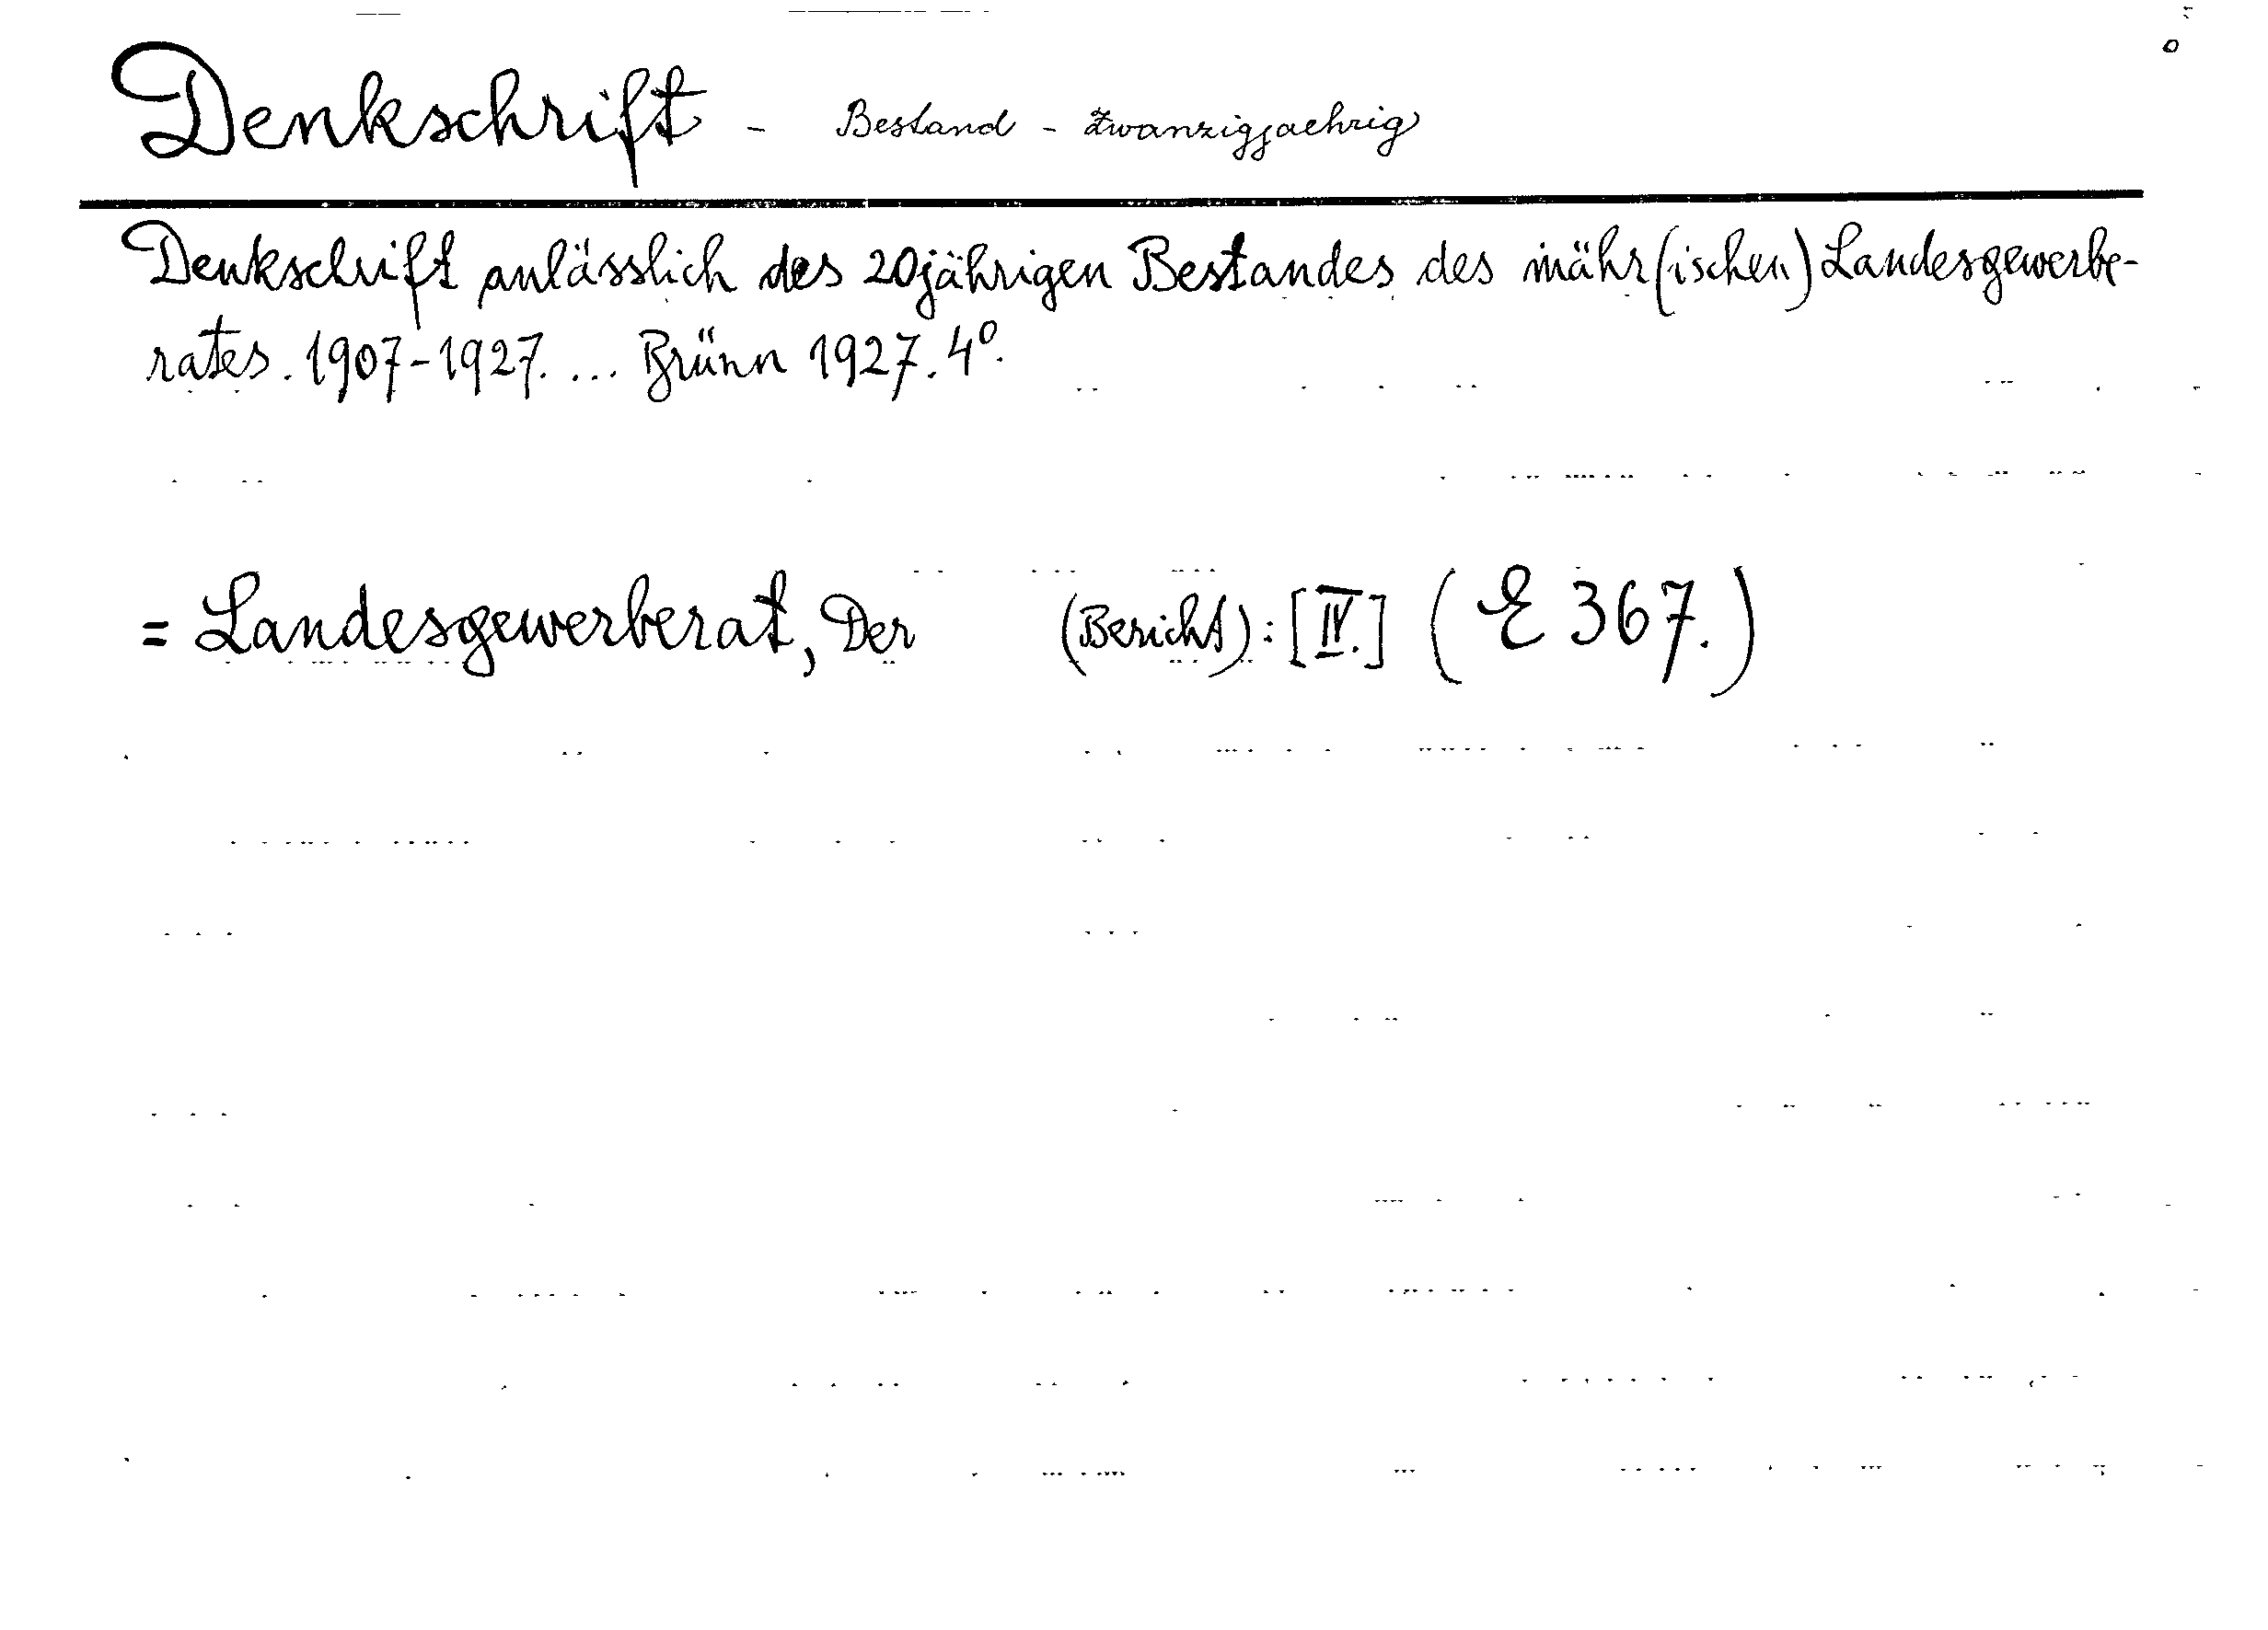 Denkschrift - Bestand - Zwanzigjaehrig
Denkschrift anlässlich des 20jährigen Bestandes des mähr(ischen) Landesgewerbe-
rates. 1907-1927. ... Brünn 1927. 4°.
= Landesgewerberat, Der (Bericht): [IV.] (E 367.)